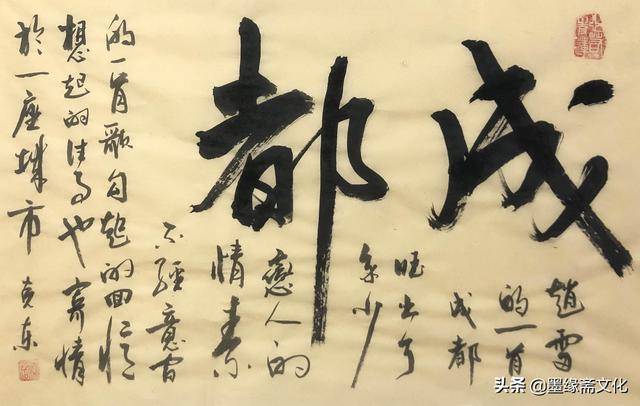 成都
趙雷
的一首
成都
唱出了
多少
戀人的
情素
不經意间
的一首歌勾起的回忆
想起的往事也寄情
於一座城市 克东
头条 @墨缘斋文化